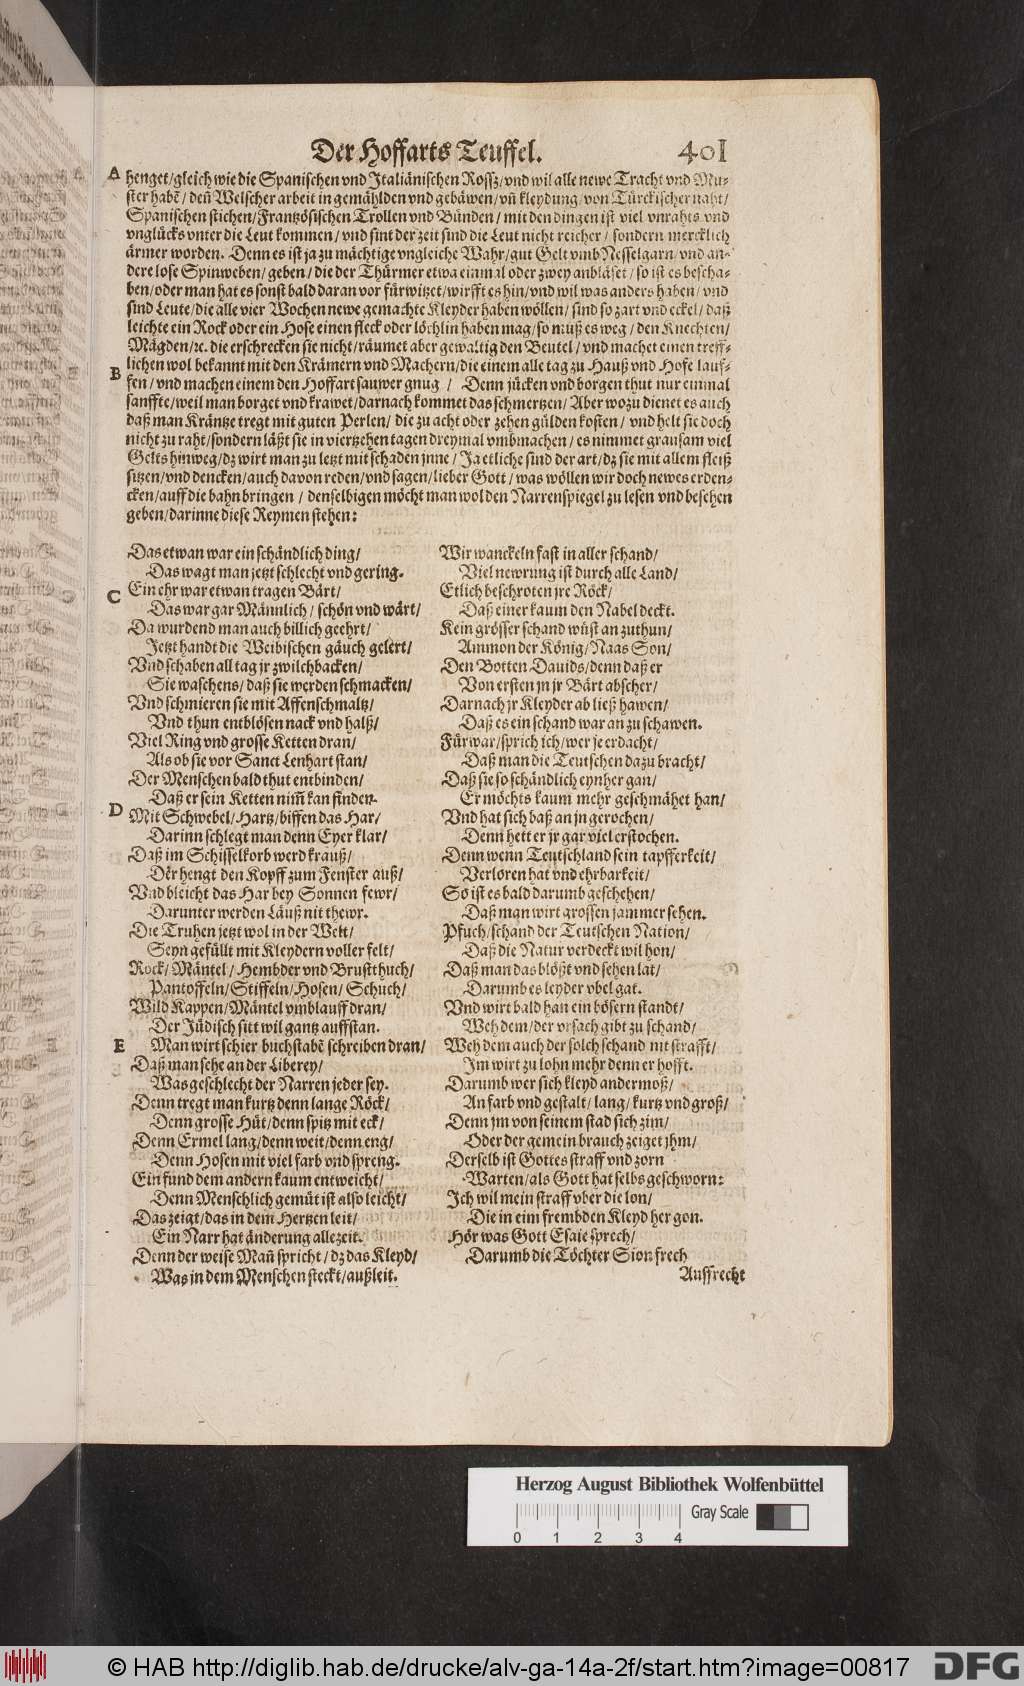 Der Hoffarts Teuffel. 401
A henget/gleich wie die Spanischen vnd Jtaliänischen Rossz/vnd wil alle newe Tracht vnd Mu-
ster habē/ deñ Welscher arbeit in gemählden vnd gebäwen/vñ kleydung/von Türckischer naht/
Spanischen stichen/Frantzösischen Trollen vnd Bünden/ mit den dingen ist viel vnrahts vnd
vnglücks vnter die Leut kommen/ vnd sint der zeit sind die Leut nicht reicher/ sondern mercklich
ärmer worden. Denn es ist ja zu mächtige vngleiche Wahr/gut Gelt vmb Nesselgarn/vnd an-
dere lose Spinweben/ geben/ die der Thürmer etwa einmal oder zwey anbläset/ so ist es bescha-
ben/oder man hat es sonst bald daran vor fürwitzet/wirfft es hin/vnd wil was anders haben/ vnd
sind Leute/die alle vier Wochen newe gemachte Kleyder haben wöllen/ sind so zart vnd eckel/ daß
leichte ein Rock oder ein Hose einen fleck oder löchlin haben mag/so muß es weg/ den Knechten/
Mägden/ꝛc. die erschrecken sie nicht/räumet aber gewaltig den Beutel/ vnd machet einen treff-
lichen wol bekannt mit den Krämern vnd Machern/die einem alle tag zu Hauß vnd Hofe lauf-
B fen/ vnd machen einem den Hoffart sauwer gnug/ Denn jücken vnd borgen thut nur einmal
sanffte/weil man borget vnd krawet/darnach kommet das schmertzen/ Aber wozu dienet es auch
daß man Kräntze tregt mit guten Perlen/ die zu acht oder zehen gülden kosten/ vnd helt sie doch
nicht zu raht/sondern läßt sie in viertzehen tagen dreymal vmbmachen/ es nimmet grausam viel
Gelts hinweg/dz wirt man zu letzt mit schaden jnne/ Ja etliche sind der art/dz sie mit allem fleiß
sitzen/vnd dencken/auch davon reden/vnd sagen/lieber Gott/ was wöllen wir doch newes erden-
cken/auff die bahn bringen/ denselbigen möcht man wol den Narrenspiegel zu lesen vnd besehen
geben/darinne diese Reymen stehen:
Das etwan war ein schändlich ding/
Das wagt man jetzt schlecht vnd gering.
C Ein ehr war etwan tragen Bärt/
Das war gar Männlich/ schön vnd wärt/
Da wurdend man auch billich geehrt/
Jetzt handt die Weibischen gäuch gelert/
Vnd schaben all tag jr zwilchbacken/
Sie waschens/ daß sie werden schmacken/
Vnd schmieren sie mit Affenschmaltz/
Vnd thun entblösen nack vnd halß/
Viel Ring vnd grosse Ketten dran/
Als ob sie vor Sanct Lenhart stan/
Der Menschen bald thut entbinden/
Daß er sein Ketten nim̃ kan finden.
D Mit Schwebel/Hartz/biffen das Har/
Darinn schlegt man denn Eyer klar/
Daß im Schisselkorb werd krauß/
Der hengt den Kopff zum Fenster auß/
Vnd bleicht das Har bey Sonnen fewr/
Darunter werden Läuß nit thewr.
Die Truhen jetzt wol in der Welt/
Seyn gefüllt mit Kleydern voller felt/
Rock/ Mäntel/ Hembder vnd Brustthuch/
Pantoffeln/Stiffeln/Hosen/ Schuch/
Wild Kappen/Mäntel vmblauff dran/
Der Jüdisch sitt wil gantz auffstan.
E Man wirt schier buchstabē schreiben dran/
Daß man sehe an der Liberey/
Was geschlecht der Narren jeder sey.
Denn tregt man kurtz denn lange Röck/
Denn grosse Hüt/denn spitz mit eck/
Denn Ermel lang/denn weit/denn eng/
Denn Hosen mit viel farb vnd spreng.
Ein fund dem andern kaum entweicht/
Denn Menschlich gemüt ist also leicht/
Das zeigt/das in dem Hertzen leit/
Ein Narr hat änderung allezeit.
Denn der weise Mañ spricht/ dz das Kleyd/
Was in dem Menschen steckt/außleit.
Wir wanckeln fast in aller schand/
Viel newrung ist durch alle Land/
Etlich beschroten jre Röck/
Daß einer kaum den Nabel deckt.
Kein grösser schand wüst an zuthun/
Ammon der König/Naas Son/
Den Botten Dauids/denn daß er
Von ersten jn jr Bärt abscher/
Darnach jr Kleyder ab ließ hawen/
Daß es ein schand war an zu schawen.
Fürwar/sprich ich/wer je erdacht/
Daß man die Teutschen dazu bracht/
Daß sie so schändlich eynher gan/
Er möchts kaum mehr geschmähet han/
Vnd hat sich baß an jn gerochen/
Denn hett er jr gar viel erstochen.
Denn wenn Teutschland sein tapfferkeit/
Verloren hat vnd ehrbarkeit/
So ist es bald darumb geschehen/
Daß man wirt grossen jammer sehen.
Pfuch/schand der Teutschen Nation/
Daß die Natur verdeckt wil hon/
Daß man das blößt vnd sehen lat/
Darumb es leyder vbel gat.
Vnd wirt bald han ein bösern standt/
Weh dem/der vrsach gibt zu schand/
Weh dem auch der solch schand nit strafft/
Im wirt zu lohn mehr denn er hofft.
Darumb wer sich kleyd andermoß/
An farb vnd gestalt/ lang/ kurtz vnd groß/
Denn jm von seinem stad sich zim/
Oder der gemein brauch zeiget jhm/
Derselb ist Gottes straff vnd zorn
Warten/als Gott hat selbs geschworn:
Ich wil mein straff vber die lon/
Die in eim frembden Kleyd her gon.
Hör was Gott Esaie sprech/
Darumb die Töchter Sion frech
Auffrecht
Herzog August Bibliothek Wolfenbüttel
Gray Scale
0 1 2 3 4
© HAB http://diglib.hab.de/drucke/alv-ga-14a-2f/start.htm?image=00817
DFG